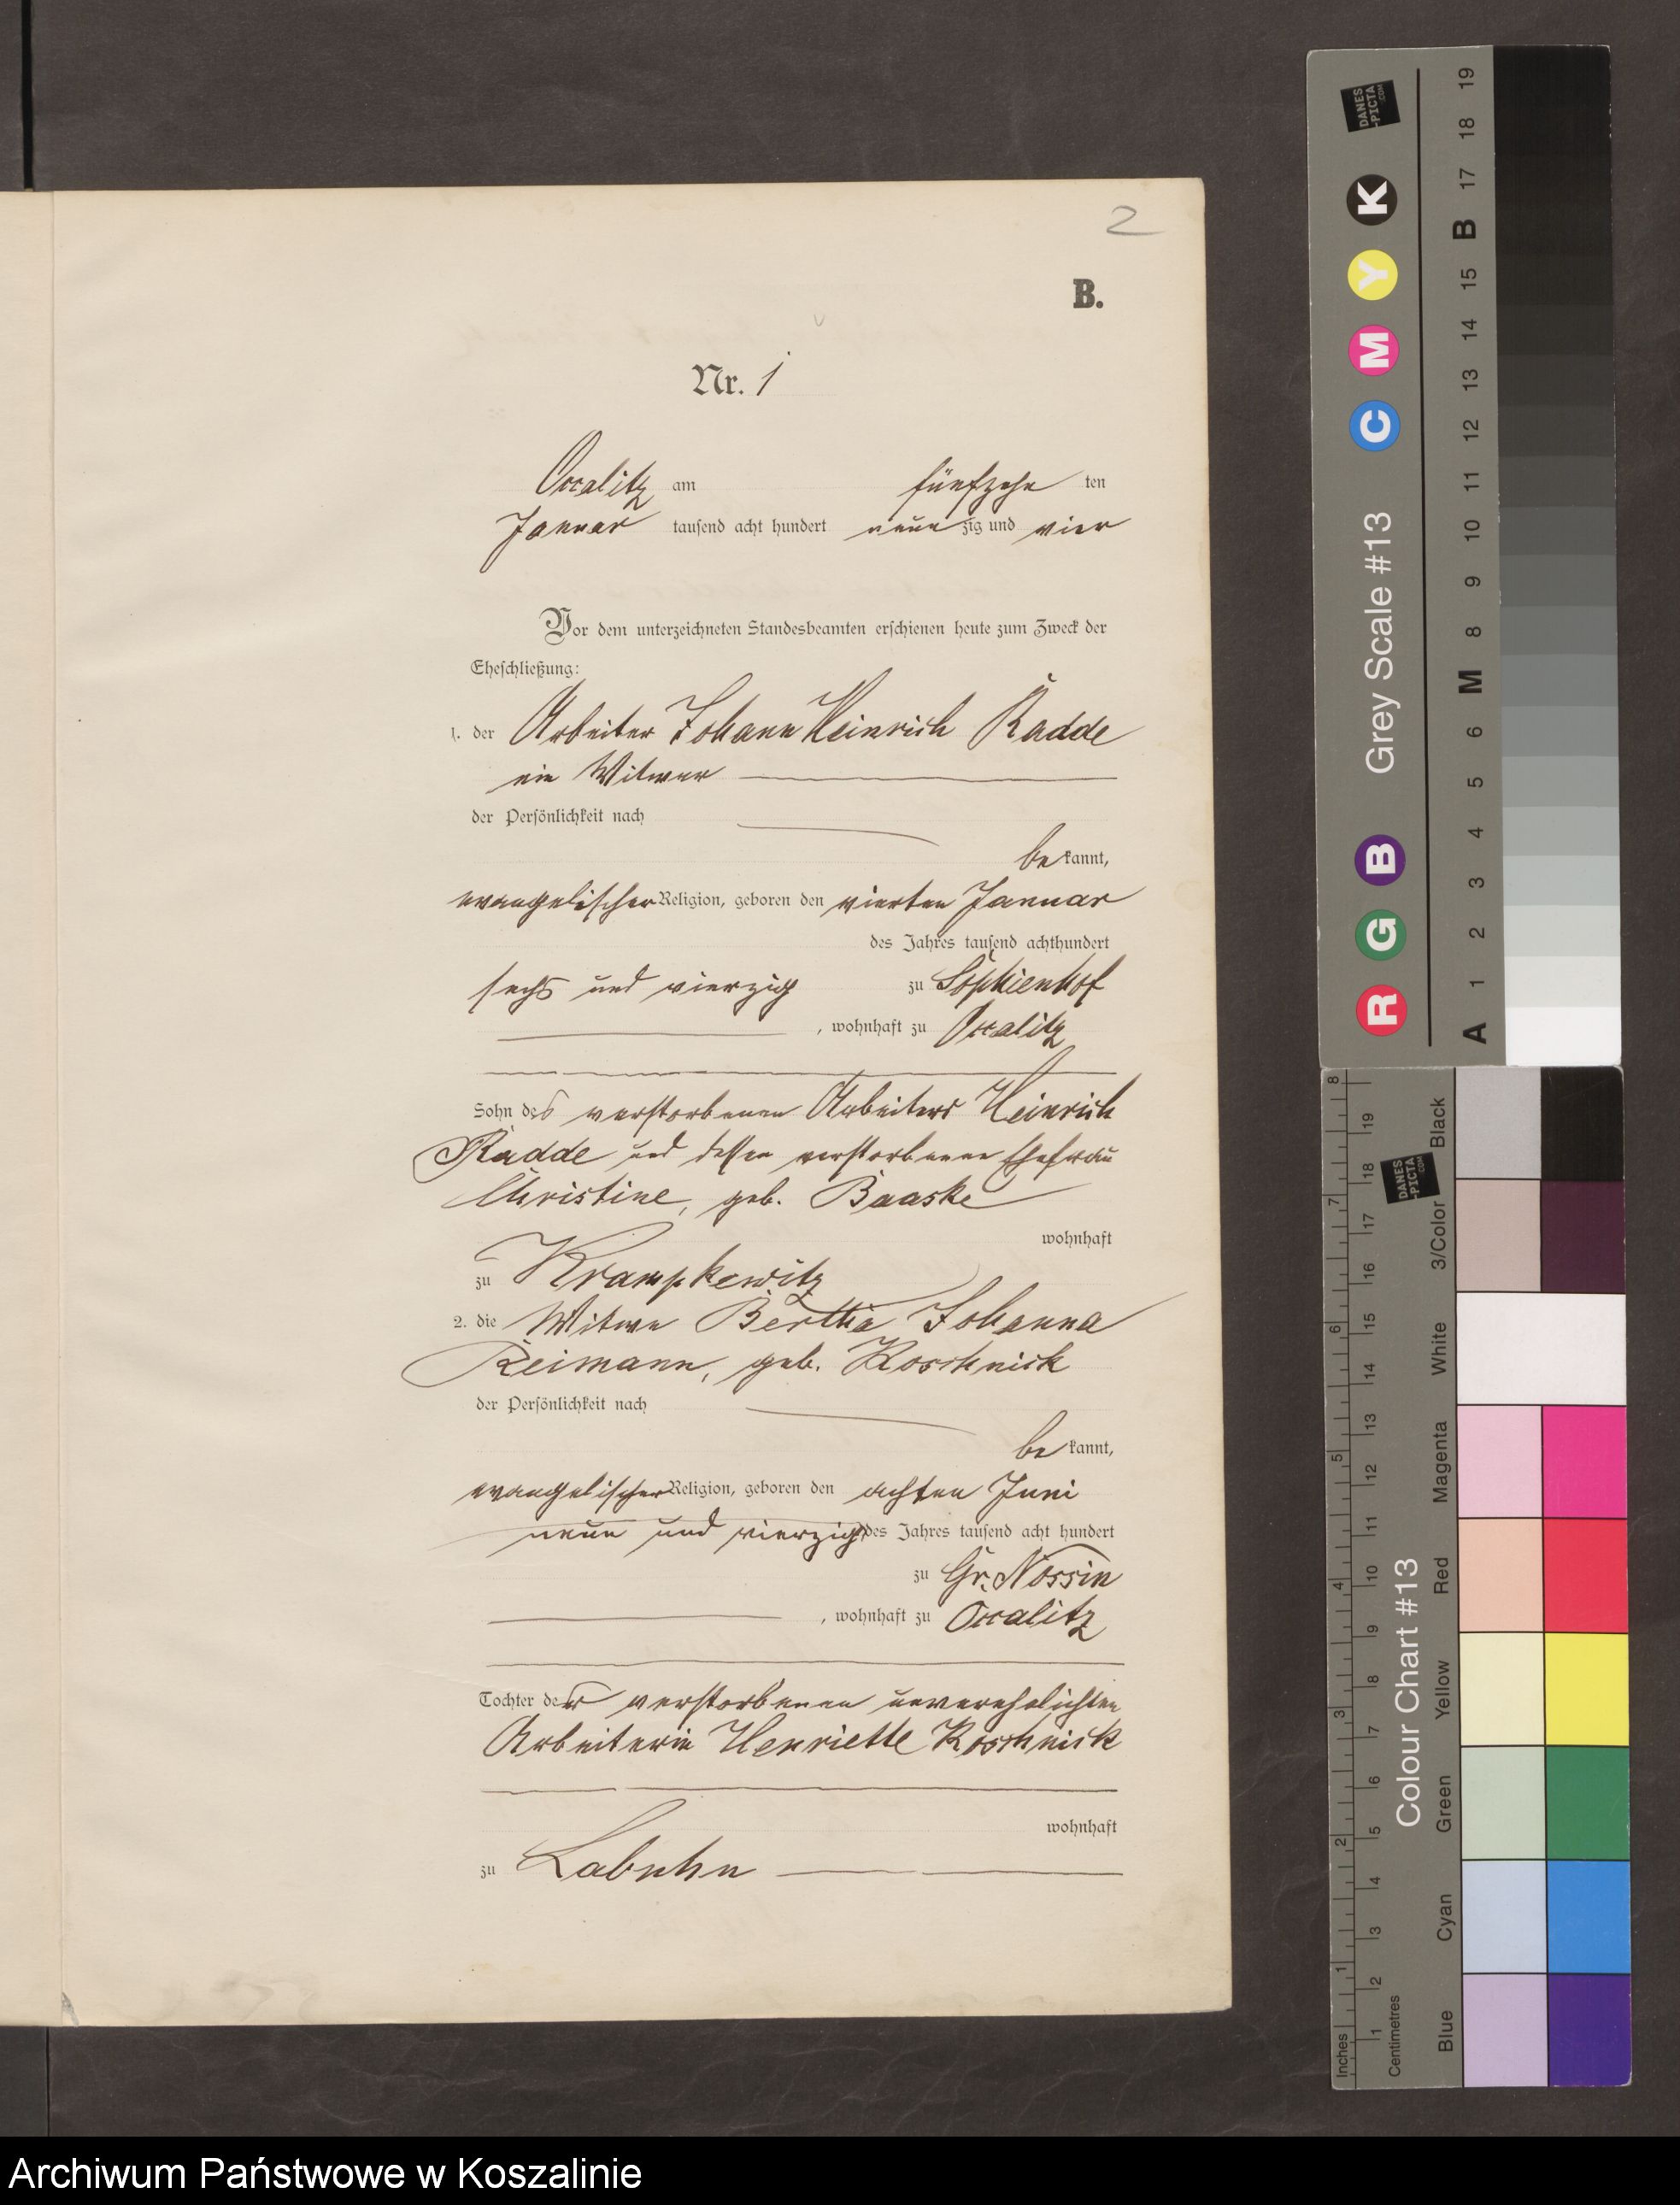 2
B.
Nr. 1
Occalitz am fünfzehn ten
Januar tausend acht hundert neun zig und vier
Vor dem unterzeichneten Standesbeamten erschienen heute zum Zweck der
Eheschließung:
1. der Arbeiter Johann Heinrich Radde
ein Witwer
der Persönlichkeit nach
be kannt,
evangelischer Religion, geboren den vierten Januar
des Jahres tausend achthundert
sechs und vierzig zu Sophienhof
, wohnhaft zu Occalitz
Sohn des verstorbenen Arbeiters Heinrich
Radde und dessen verstorbenen Ehefrau
Christine, geb. Baaske
wohnhaft
zu Krampkewitz
2. die Witwe Bertha Johanna
Reimann, geb. Koschnick
der Persönlichkeit nach
be kannt,
evangelischer Religion, geboren den achten Juni
neun und vierzig des Jahres tausend acht hundert
zu Gr. Nossin
, wohnhaft zu Occalitz
Tochter der verstorbenen unverehelichten
Arbeiterin Henriette Koschnick
wohnhaft
zu Labuhn
Grey Scale #13
R G B C M Y K
A 1 2 3 4 5 6 M 8 9 10 11 12 13 14 15 B 17 18 19
DANES
-PICTA
.COM
Colour Chart #13
Blue Cyan Green Yellow Red Magenta White 3/Color Black
Inches 1 2 3 4 5 6 7 8
Centimetres 1 2 3 4 5 6 7 8 9 10 11 12 13 14 15 16 17 18 19
DANES
-PICTA
.COM
Archiwum Państwowe w Koszalinie